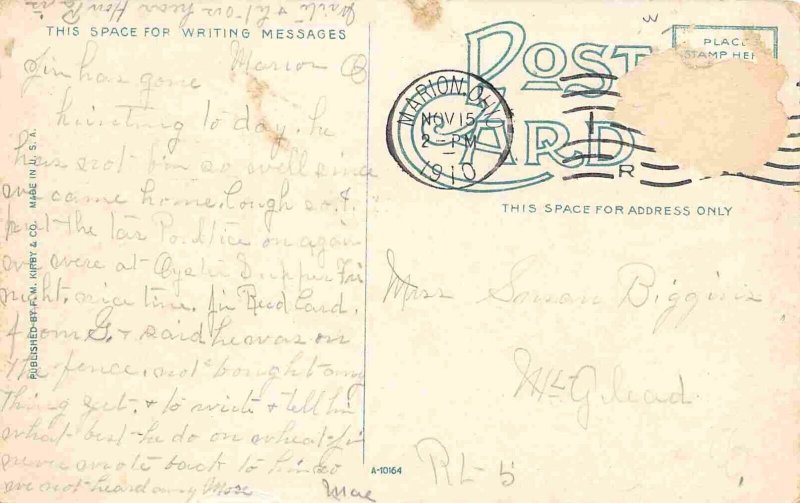 Write & let us hear How Pa is
THIS SPACE FOR WRITING MESSAGES
Marion O
Jim has gone
hunting to day. he
has not bin so well since
we came home. Cough so. I
put the tar Poultice on again
we were at Oyster Supper Fri
night. nice time. Jim Recd Card.
from G. & said he was on
the fence. not bought any
thing yet. & to write & tell him
what best he do on wheat. Jim
never wrote back to him so
we not heard any More
Mae
PUBLISHED BY F. M. KIRBY & CO. MADE IN U. S. A.
POST CARD
PLACE
STAMP HERE
MARION, OHIO
NOV 15
2 - PM
1910
R
THIS SPACE FOR ADDRESS ONLY
Miss Susan Biggins
Mt Gilead
A-10164